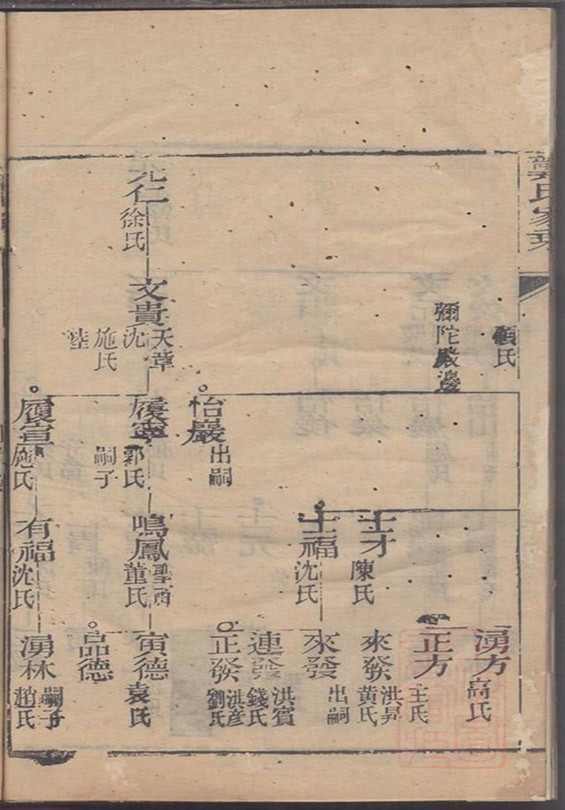 龔氏家乘
顧氏
彌陀嚴邊
元仁
徐氏
文貴
天章
沈
施氏
陸
怡嚴
出嗣
履寧
郭氏
嗣子
履宣
施氏
士才
陳氏
士福
沈氏
鳴鳳
聖西
董氏
有福
沈氏
湧方
高氏
正方
王氏
來發
洪昇
黄氏
來發
出嗣
連發
洪賓
錢氏
正發
洪彥
劉氏
寅德
袁氏
品德
湧林
嗣子
趙氏